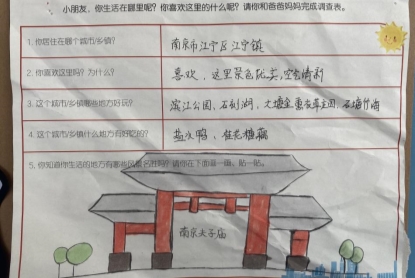 小朋友，你生活在哪里呢？你喜欢这里的什么呢？请你和爸爸妈妈完成调查表。
1. 你居住在哪个城市/乡镇？ 南京市江宁区江宁镇
2. 你喜欢这里吗？为什么？ 喜欢，这里景色优美,空气清新
3. 这个城市/乡镇哪些地方好玩？ 滨江公园、石刻湖、大塘金薰衣草庄园、石塘竹海
4. 这个城市/乡镇什么地方有好吃的？ 盐水鸭、桂花糖藕
5. 你知道你生活的地方有哪些风景名胜吗？请你在下面画一画、贴一贴。
南京夫子庙